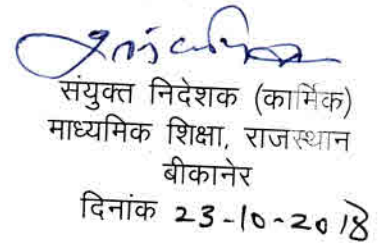 संयुक्त निदेशक (कार्मिक)
माध्यमिक शिक्षा, राजस्थान
बीकानेर
दिनांक 23-10-2018